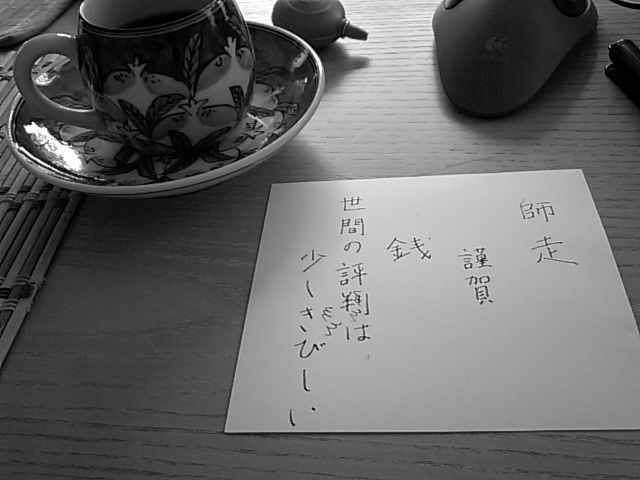 師走
謹賀
銭
世間の評判は
少しきびしい